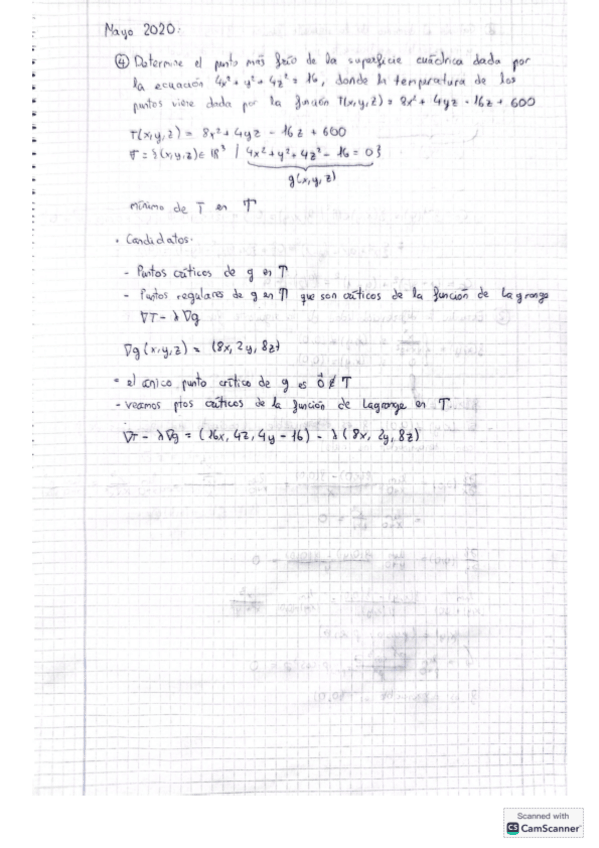 Mayo 2020:
④ Determine el punto más frío de la superficie cuádrica dada por
la ecuación 4x² + y² + 4z² = 16, donde la temperatura de los
puntos viene dada por la función T(x,y,z) = 8x² + 4yz - 16z + 600
T(x,y,z) = 8x² + 4yz - 16z + 600
T = {(x,y,z) ∈ ℝ³ / 4x² + y² + 4z² - 16 = 0}
g(x,y,z)
mínimo de T en T
• Candidatos:
- Puntos críticos de g en T
- Puntos regulares de g en T que son críticos de la función de Lagrange
∇T - λ∇g
∇g(x,y,z) = (8x, 2y, 8z)
- el único punto crítico de g es 0⃗ ∉ T
- veamos ptos críticos de la función de Lagrange en T
∇T - λ∇g = (16x, 4z, 4y - 16) - λ(8x, 2y, 8z)
Scanned with
CS CamScanner